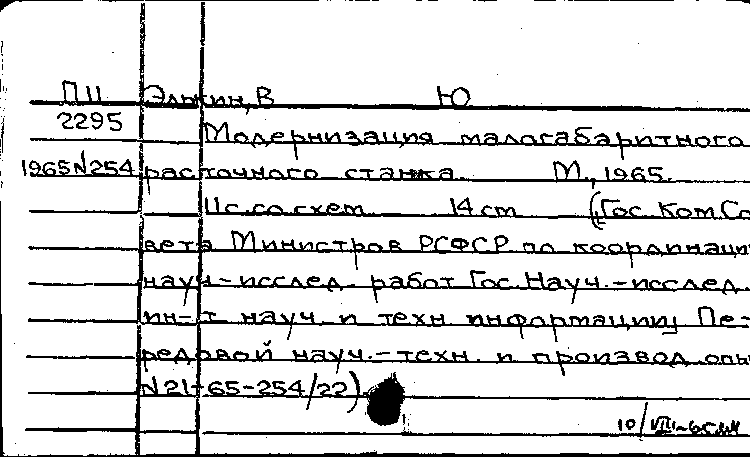 П11 Элькин, В Ю
2295 Модернизация малогабаритного
1965 N254 расточного станка М., 1965.
11с. со схем 14 cm (Гос. Ком. Со
вета Министров РСФСР по координаци
науч-исслед. работ Гос. Науч.-исслед
ин-т науч. и техн информации Пе-
редовой науч.-техн. и производ. опы
N21-65-254/22)
10/VIII-65